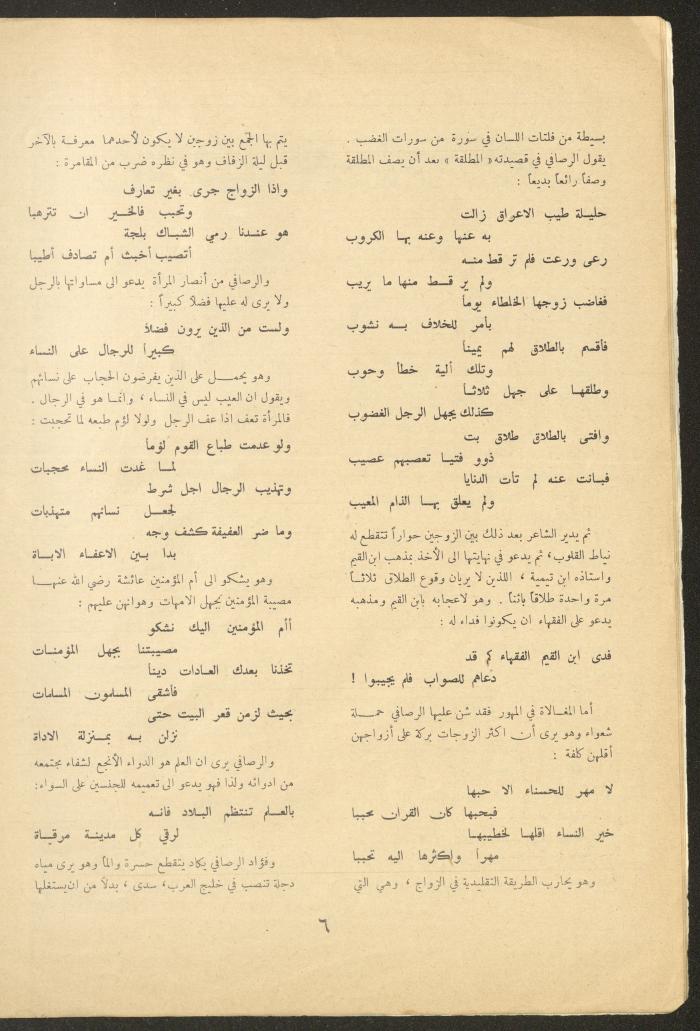 بسيطة من فلتات اللسان في سورة من سورات الغضب .
يقول الرصافي في قصيدته « المطلقة » بعد أن يصف المطلقة
وصفاً رائعاً بديعاً :
حليلة طيب الاعراق زالت
به عنها وعنه بها الكروب
رعى ورعت فلم تر قط منه
ولم ير قط منها ما يريب
فغاضب زوجها الخلطاء يوماً
بأمر للخلاف به نشوب
فأقسم بالطلاق لهم يميناً
وتلك ألية خطأ وحوب
وطلقها على جهل ثلاثاً
كذلك يجهل الرجل الغضوب
وافتى بالطلاق طلاق بت
ذوو فتيا تعصبهم عصيب
فبانت عنه لم تأت الدنايا
ولم يعلق بها الذام المعيب
ثم يدير الشاعر بعد ذلك بين الزوجين حواراً تتقطع له
نياط القلوب ، ثم يدعو في نهايتها الى الأخذ بمذهب ابن القيم
واستاذه ابن تيمية ، اللذين لا يريان وقوع الطلاق ثلاثاً
مرة واحدة طلاقاً بائناً . وهو لاعجابه بابن القيم ومذهبه
يدعو على الفقهاء ان يكونوا فداء له :
فدى ابن القيم الفقهاء كم قد
دعاهم للصواب فلم يجيبوا !
أما المغالاة في المهور فقد شن عليها الرصافي حملة
شعواء وهو يرى أن اكثر الزوجات بركة على أزواجهن
أقلهن كلفة :
لا مهر للحسناء الا حبها
فبحبها كان القران محببا
خير النساء اقلها لخطيبها
مهراً واكثرها اليه تحببا
وهو يحارب الطريقة التقليدية في الزواج ، وهي التي
يتم بها الجمع بين زوجين لا يكون لأحدهما معرفة بالآخر
قبل ليلة الزفاف وهو في نظره ضرب من المقامرة :
واذا الزواج جرى بغير تعارف
وتحبب فالخير ان تترهبا
هو عندنا رمي الشباك بلجة
أتصيب أخبث أم تصادف أطيبا
والرصافي من أنصار المرأة يدعو الى مساواتها بالرجل
ولا يرى له عليها فضلاً كبيراً :
ولست من الذين يرون فضلاً
كبيراً للرجال على النساء
وهو يحمل على الذين يفرضون الحجاب على نسائهم
ويقول ان العيب ليس في النساء ، وانما هو في الرجال .
فالمرأة تعف اذا عف الرجل ولولا لؤم طبعه لما تحجبت :
ولو عدمت طباع القوم لؤماً
لما غدت النساء محجبات
وتهذيب الرجال اجل شرط
لجعل نسائهم متهذبات
وما ضر العفيفة كشف وجه
بدا بين الاعفاء الاباة
وهو يشكو الى أم المؤمنين عائشة رضي الله عنها
مصيبة المؤمنين بجهل الامهات وهوانهن عليهم :
أأم المؤمنين اليك نشكو
مصيبتنا بجهل المؤمنات
تخذنا بعدك العادات ديناً
فأشقى المسلمون المسلمات
بحيث لزمن قعر البيت حتى
نزلن به بمنزلة الاداة
والرصافي يرى ان العلم هو الدواء الأنجع لشفاء مجتمعه
من ادوائه ولذا فهو يدعو الى تعميمه للجنسين على السواء:
بالعلم تنتظم البلاد فانه
لرقي كل مدينة مرقاة
وفؤاد الرصافي يكاد يتقطع حسرة والماً وهو يرى مياه
دجلة تنصب في خليج العرب، سدى ، بدلاً من ان يستغلها
٦